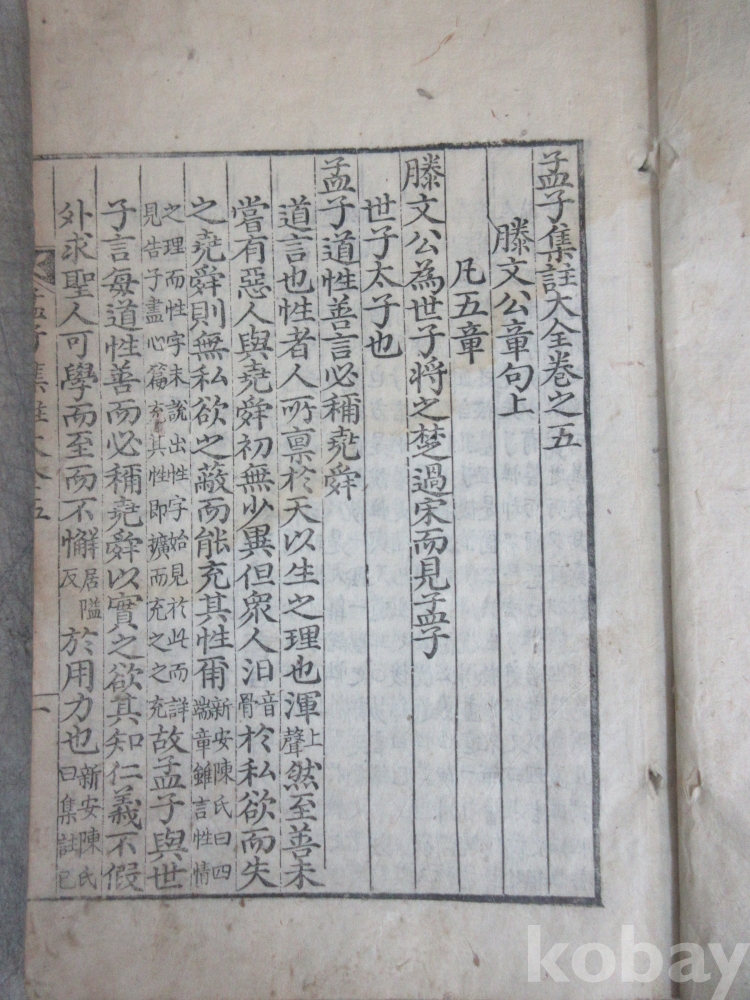 孟子集註大全卷之五
滕文公章句上
凡五章
滕文公為世子將之楚過宋而見孟子
世子太子也
孟子道性善言必稱堯舜
道言也性者人所稟於天以生之理也渾上聲然至善未
嘗有惡人與堯舜初無少異但衆人汩音骨於私欲而失
之堯舜則無私欲之蔽而能充其性爾新安陳氏曰四端章雖言性情
之理而性字未說出性字始見於此而詳見告子盡心篇充其性即擴而充之之充故孟子與世
子言每道性善而必稱堯舜以實之欲其知仁義不假
外求聖人可學而至而不懈居隘反於用力也新安陳氏曰集註已
孟子集註大全五
一
kobay